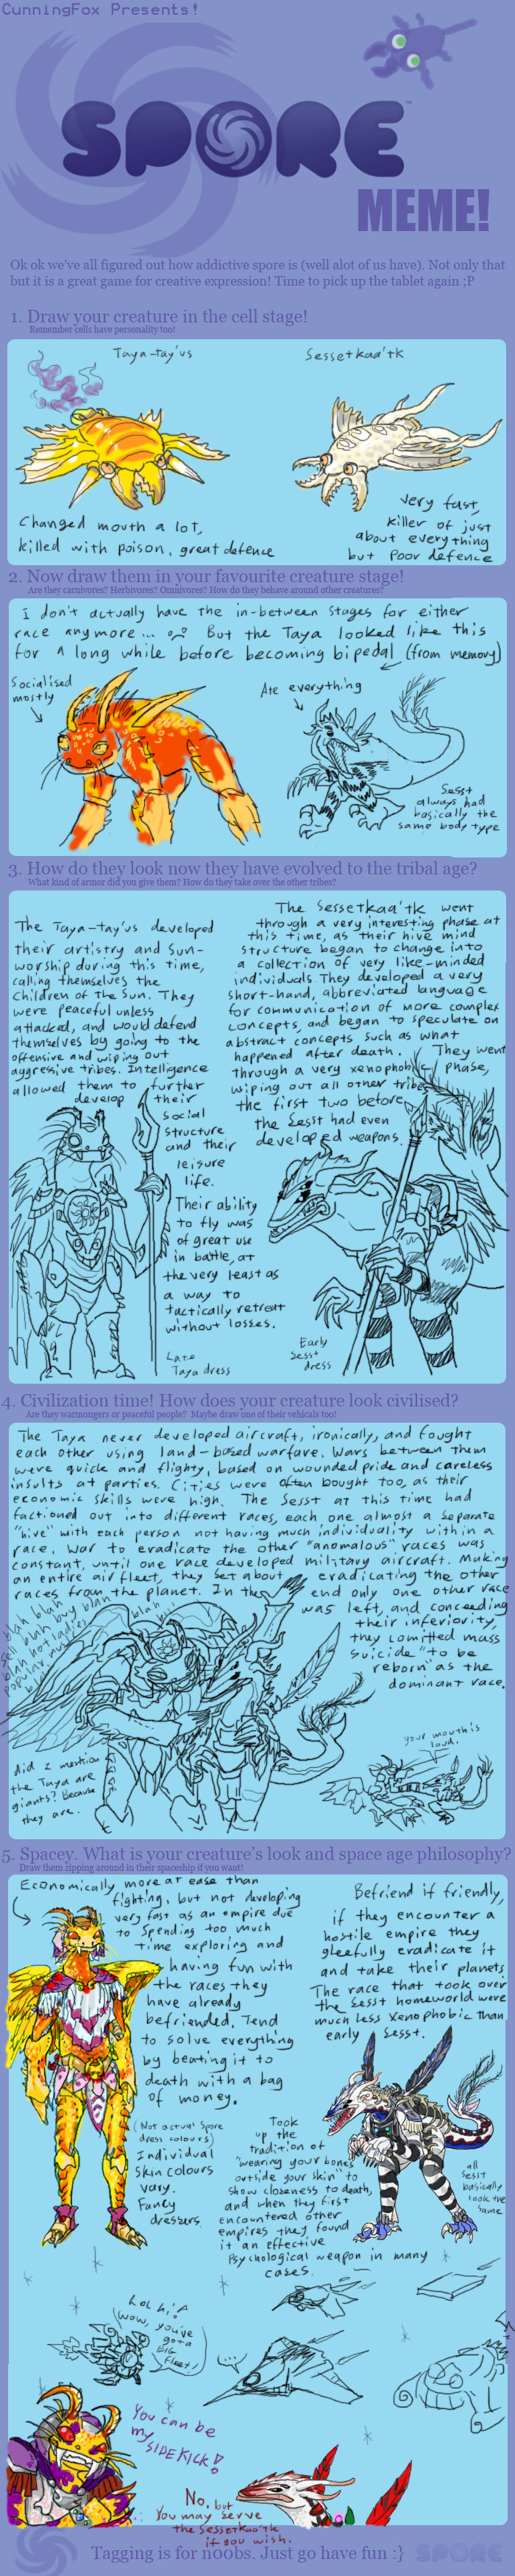 CunningFox Presents!
SPORE
MEME!
Ok ok we've all figured out how addictive spore is (well alot of us have). Not only that
but it is a great game for creative expression! Time to pick up the tablet again ;P
1. Draw your creature in the cell stage!
Remember cells have personality too!
Taya-tay'us
Changed mouth a lot,
killed with poison, great defence
Sessetkaa'tk
Very fast,
killer of just
about everything
but poor defence
2. Now draw them in your favourite creature stage!
Are they carnivores? Herbivores? Omnivores? How do they behave around other creatures?
I don't actually have the in-between stages for either
race anymore... But the Taya looked like this
for a long while before becoming bipedal (from memory)
Socialised
mostly
Ate everything
Sesst
always had
basically the
same body type
3. How do they look now they have evolved to the tribal age?
What kind of armor did you give them? How do they take over the other tribes?
The Taya-tay'us developed
their artistry and sun-
worship during this time,
calling themselves the
Children of the Sun. They
were peaceful unless
attacked, and would defend
themselves by going to the
offensive and wiping out
aggressive tribes. Intelligence
allowed them to further
develop their
social
structure
and their
leisure
life.
Their ability
to fly was
of great use
in battle, at
the very least as
a way to
tactically retreat
without losses.
Late
Taya dress
The Sessetkaa'tk went
through a very interesting phase at
this time, as their hive mind
structure began to change into
a collection of very like-minded
individuals. They developed a very
short-hand, abbreviated language
for communication of more complex
concepts, and began to speculate on
abstract concepts such as what
happened after death. They went
through a very xenophobic phase,
wiping out all other tribes
the first two before
the Sesst had even
developed weapons.
Early
Sesst
dress
4. Civilization time! How does your creature look civilised?
Are they warmongers or peaceful people? Maybe draw one of their vehicals too!
The Taya never developed aircraft, ironically, and fought
each other using land-based warfare. Wars between them
were quick and flighty, based on wounded pride and careless
insults at parties. Cities were often bought too, as their
economic skills were high. The Sesst at this time had
factioned out into different races, each one almost a separate
"hive" with each person not having much individuality within a
race. War to eradicate the other "anomalous" races was
constant, until one race developed military aircraft. Making
an entire air fleet, they set about eradicating the other
races from the planet. In the end only one other race
was left, and conceeding
their inferiority,
they comitted mass
suicide "to be
reborn" as the
dominant race.
blah blah
blah
did I mention
the Taya are
giants? Because
they are.
your mouth is
loud.
5. Spacey. What is your creature's look and space age philosophy?
Draw them zipping around in their spaceship if you want!
Economically more at ease than
fighting, but not developing
very fast as an empire due
to spending too much
time exploring and
having fun with
the races they
have already
befriended. Tend
to solve everything
by beating it to
death with a bag
of money.
(Not actual Spore
dress colours)
Individual
skin colours
vary.
Fancy
dressers
Befriend if friendly,
if they encounter a
hostile empire they
gleefully eradicate it
and take their planets
The race that took over
the Sesst homeworld were
much less xenophobic than
early Sesst.
Took
up the
tradition of
"wearing your bones
outside your skin" to
show closeness to death,
and when they first
encountered other
empires they found
it an effective
psychological weapon in many
cases.
all
Sesst
basically
look the
same
LOL hi!
Wow, you've
got a
big
fleet!
...
You can be
my SIDEKICK!
No, but
You may serve
the Sessetkaa'tk
if you wish.
Tagging is for noobs. Just go have fun :}
SPORE